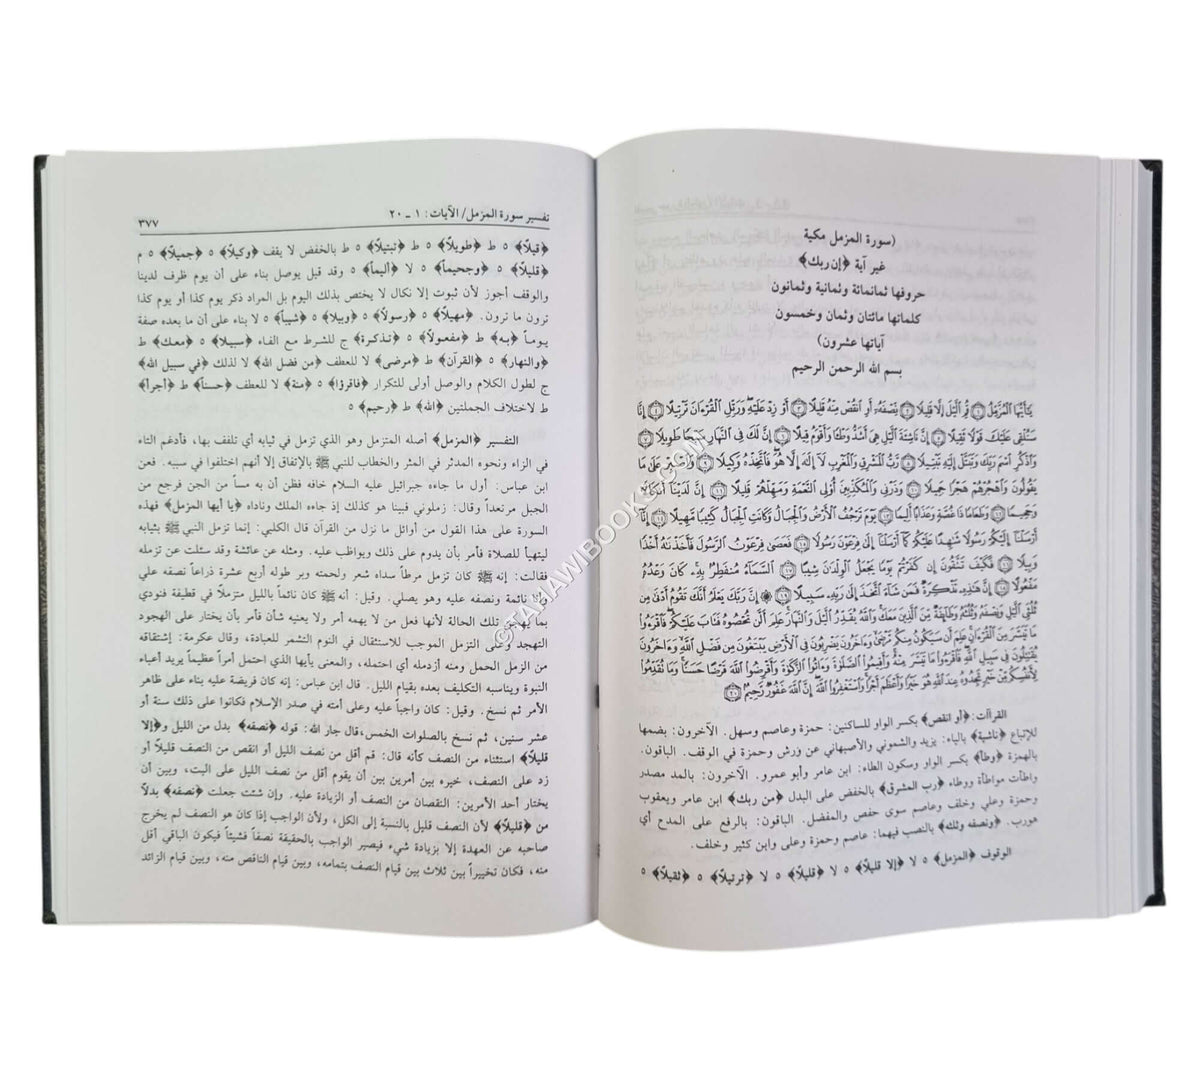 (سورة المزمل مكية
غير آية ﴿إن ربك﴾
حروفها ثمانمائة وثمانية وثمانون
كلماتها مائتان وثمان وخمسون
آياتها عشرون)
بسم الله الرحمن الرحيم
يَٰٓأَيُّهَا ٱلْمُزَّمِّلُ ۝١ قُمِ ٱلَّيْلَ إِلَّا قَلِيلًا ۝٢ نِّصْفَهُۥٓ أَوِ ٱنقُصْ مِنْهُ قَلِيلًا ۝٣ أَوْ زِدْ عَلَيْهِ وَرَتِّلِ ٱلْقُرْءَانَ تَرْتِيلًا ۝٤ إِنَّا
سَنُلْقِى عَلَيْكَ قَوْلًا ثَقِيلًا ۝٥ إِنَّ نَاشِئَةَ ٱلَّيْلِ هِىَ أَشَدُّ وَطْـًٔا وَأَقْوَمُ قِيلًا ۝٦ إِنَّ لَكَ فِى ٱلنَّهَارِ سَبْحًا طَوِيلًا ۝٧
وَٱذْكُرِ ٱسْمَ رَبِّكَ وَتَبَتَّلْ إِلَيْهِ تَبْتِيلًا ۝٨ رَّبُّ ٱلْمَشْرِقِ وَٱلْمَغْرِبِ لَآ إِلَٰهَ إِلَّا هُوَ فَٱتَّخِذْهُ وَكِيلًا ۝٩ وَٱصْبِرْ عَلَىٰ مَا
يَقُولُونَ وَٱهْجُرْهُمْ هَجْرًا جَمِيلًا ۝١٠ وَذَرْنِى وَٱلْمُكَذِّبِينَ أُو۟لِى ٱلنَّعْمَةِ وَمَهِّلْهُمْ قَلِيلًا ۝١١ إِنَّ لَدَيْنَآ أَنكَالًا
وَجَحِيمًا ۝١٢ وَطَعَامًا ذَا غُصَّةٍ وَعَذَابًا أَلِيمًا ۝١٣ يَوْمَ تَرْجُفُ ٱلْأَرْضُ وَٱلْجِبَالُ وَكَانَتِ ٱلْجِبَالُ كَثِيبًا مَّهِيلًا ۝١٤ إِنَّآ
أَرْسَلْنَآ إِلَيْكُمْ رَسُولًا شَٰهِدًا عَلَيْكُمْ كَمَآ أَرْسَلْنَآ إِلَىٰ فِرْعَوْنَ رَسُولًا ۝١٥ فَعَصَىٰ فِرْعَوْنُ ٱلرَّسُولَ فَأَخَذْنَٰهُ أَخْذًا
وَبِيلًا ۝١٦ فَكَيْفَ تَتَّقُونَ إِن كَفَرْتُمْ يَوْمًا يَجْعَلُ ٱلْوِلْدَٰنَ شِيبًا ۝١٧ ٱلسَّمَآءُ مُنفَطِرٌۢ بِهِۦ كَانَ وَعْدُهُۥ
مَفْعُولًا ۝١٨ إِنَّ هَٰذِهِۦ تَذْكِرَةٌ فَمَن شَآءَ ٱتَّخَذَ إِلَىٰ رَبِّهِۦ سَبِيلًا ۝١٩ ۞ إِنَّ رَبَّكَ يَعْلَمُ أَنَّكَ تَقُومُ أَدْنَىٰ مِن
ثُلُثَىِ ٱلَّيْلِ وَنِصْفَهُۥ وَثُلُثَهُۥ وَطَآئِفَةٌ مِّنَ ٱلَّذِينَ مَعَكَ وَٱللَّهُ يُقَدِّرُ ٱلَّيْلَ وَٱلنَّهَارَ عَلِمَ أَن لَّن تُحْصُوهُ فَتَابَ عَلَيْكُمْ فَٱقْرَءُوا۟
مَا تَيَسَّرَ مِنَ ٱلْقُرْءَانِ عَلِمَ أَن سَيَكُونُ مِنكُم مَّرْضَىٰ وَءَاخَرُونَ يَضْرِبُونَ فِى ٱلْأَرْضِ يَبْتَغُونَ مِن فَضْلِ ٱللَّهِ وَءَاخَرُونَ
يُقَٰتِلُونَ فِى سَبِيلِ ٱللَّهِ فَٱقْرَءُوا۟ مَا تَيَسَّرَ مِنْهُ وَأَقِيمُوا۟ ٱلصَّلَوٰةَ وَءَاتُوا۟ ٱلزَّكَوٰةَ وَأَقْرِضُوا۟ ٱللَّهَ قَرْضًا حَسَنًا وَمَا تُقَدِّمُوا۟
لِأَنفُسِكُم مِّنْ خَيْرٍ تَجِدُوهُ عِندَ ٱللَّهِ هُوَ خَيْرًا وَأَعْظَمَ أَجْرًا وَٱسْتَغْفِرُوا۟ ٱللَّهَ إِنَّ ٱللَّهَ غَفُورٌ رَّحِيمٌ ۝٢٠
القراآت: ﴿أو انقص﴾ بكسر الواو للساكنين: حمزة وعاصم وسهل. الآخرون: بضمها
للإتباع ﴿ناشية﴾ بالياء: يزيد والشموني والأصبهاني عن ورش وحمزة في الوقف. الباقون:
بالهمزة ﴿وطأ﴾ بكسر الواو وسكون الطاء: ابن عامر وأبو عمرو. الآخرون: بالمد مصدر
واطأت مواطأة ووطاء ﴿رب المشرق﴾ بالخفض على البدل ﴿من ربك﴾ ابن عامر ويعقوب
وحمزة وعلي وخلف وعاصم سوى حفص والمفضل. الباقون: بالرفع على المدح أي
هورب. ﴿ونصفه وثلثه﴾ بالنصب فيهما: عاصم وحمزة وعلى وابن كثير وخلف.
الوقوف ﴿المزمل﴾ ٥ لا ﴿إلا قليلاً﴾ ٥ لا ﴿قليلاً﴾ ٥ لا ﴿ترتيلاً﴾ ٥ ﴿ثقيلاً﴾ ٥
تفسير سورة المزمل/ الآيات: ١ ـ ٢٠ ٣٧٧
﴿قيلاً﴾ ٥ ط ﴿طويلاً﴾ ٥ ط ﴿تبتيلاً﴾ ٥ ط بالخفض لا يقف ﴿وكيلاً﴾ ٥ ﴿جميلاً﴾ ٥ م
﴿قليلاً﴾ ٥ ﴿وجحيماً﴾ ٥ لا ﴿أليماً﴾ ٥ وقد قيل يوصل بناء على أن يوم ظرف لدينا
والوقف أجوز لأن ثبوت إلا نكال لا يختص بذلك اليوم بل المراد ذكر يوم كذا أو يوم كذا
ترون ما ترون. ﴿مهيلاً﴾ ٥ ﴿رسولاً﴾ ٥ ﴿وبيلا﴾ ٥ ﴿شيباً﴾ ٥ لا بناء على أن ما بعده صفة
يوماً ﴿به﴾ ط ﴿مفعولاً﴾ ٥ ﴿تذكرة﴾ ج للشرط مع الفاء ﴿سبيلا﴾ ٥ ﴿معك﴾ ط
﴿والنهار﴾ ط ﴿القرآن﴾ ط ﴿مرضى﴾ لا للعطف ﴿من فضل الله﴾ لا لذلك ﴿في سبيل الله﴾
ج لطول الكلام والوصل أولى للتكرار ﴿فاقرؤا﴾ ٥ ﴿منة﴾ لا للعطف ﴿حسناً﴾ ط ﴿أجراً﴾
ط لاختلاف الجملتين ﴿الله﴾ ط ﴿رحيم﴾ ٥
التفسير ﴿المزمل﴾ أصله المتزمل وهو الذي تزمل في ثيابه أي تلفف بها، فأدغم التاء
في الزاء ونحوه المدثر في المثر والخطاب للنبي ﷺ بالإتفاق إلا أنهم اختلفوا في سببه. فعن
ابن عباس: أول ما جاءه جبرائيل عليه السلام خافه فظن أن به مساً من الجن فرجع من
الجبل مرتعداً وقال: زملوني فبينا هو كذلك إذ جاءه الملك وناداه ﴿يا أيها المزمل﴾ فهذه
السورة على هذا القول من أوائل ما نزل من القرآن قال الكلبي: إنما تزمل النبي ﷺ بثيابه
ليتهيأ للصلاة فأمر بأن يدوم على ذلك ويواظب عليه. ومثله عن عائشة وقد سئلت عن تزمله
فقالت: إنه ﷺ كان تزمل مرطاً سداه شعر ولحمته وبر طوله أربع عشرة ذراعاً نصفه علي
وأنا نائمة ونصفه عليه وهو يصلي. وقيل: أنه ﷺ كان نائماً بالليل متزملاً في قطيفة فنودي
بما يهجن تلك الحالة لأنها فعل من لا يهمه أمر ولا يعنيه شأن فأمر بأن يختار على الهجود
التهجد وعلى التزمل الموجب للاستثقال في النوم التشمر للعبادة، وقال عكرمة: إشتقاقه
من الزمل الحمل ومنه أزدمله أي احتمله، والمعنى يأيها الذي احتمل أمراً عظيماً يريد أعباء
النبوة ويناسبه التكليف بعده بقيام الليل. قال ابن عباس: إنه كان فريضة عليه بناء على ظاهر
الأمر ثم نسخ. وقيل: كان واجباً عليه وعلى أمته في صدر الإسلام فكانوا على ذلك سنة أو
عشر سنين، ثم نسخ بالصلوات الخمس،قال جار الله: قوله ﴿نصفه﴾ بدل من الليل و﴿إلا
قليلاً﴾ استثناء من النصف كأنه قال: قم أقل من نصف الليل أو انقص من النصف قليلاً أو
زد على النصف، خيره بين أمرين بين أن يقوم أقل من نصف الليل على البت، وبين أن
يختار أحد الأمرين: النقصان من النصف أو الزيادة عليه. وإن شئت جعلت ﴿نصفه﴾ بدلاً
من ﴿قليلاً﴾ لأن النصف قليل بالنسبة إلى الكل، ولأن الواجب إذا كان هو النصف لم يخرج
صاحبه عن العهدة إلا بزيادة شيء فيصير الواجب بالحقيقة نصفاً فشيئاً فيكون الباقي أقل
منه، فكان تخييراً بين ثلاث بين قيام النصف بتمامه، وبين قيام الناقص منه، وبين قيام الزائد
©TAHAWIBOOKS.COM